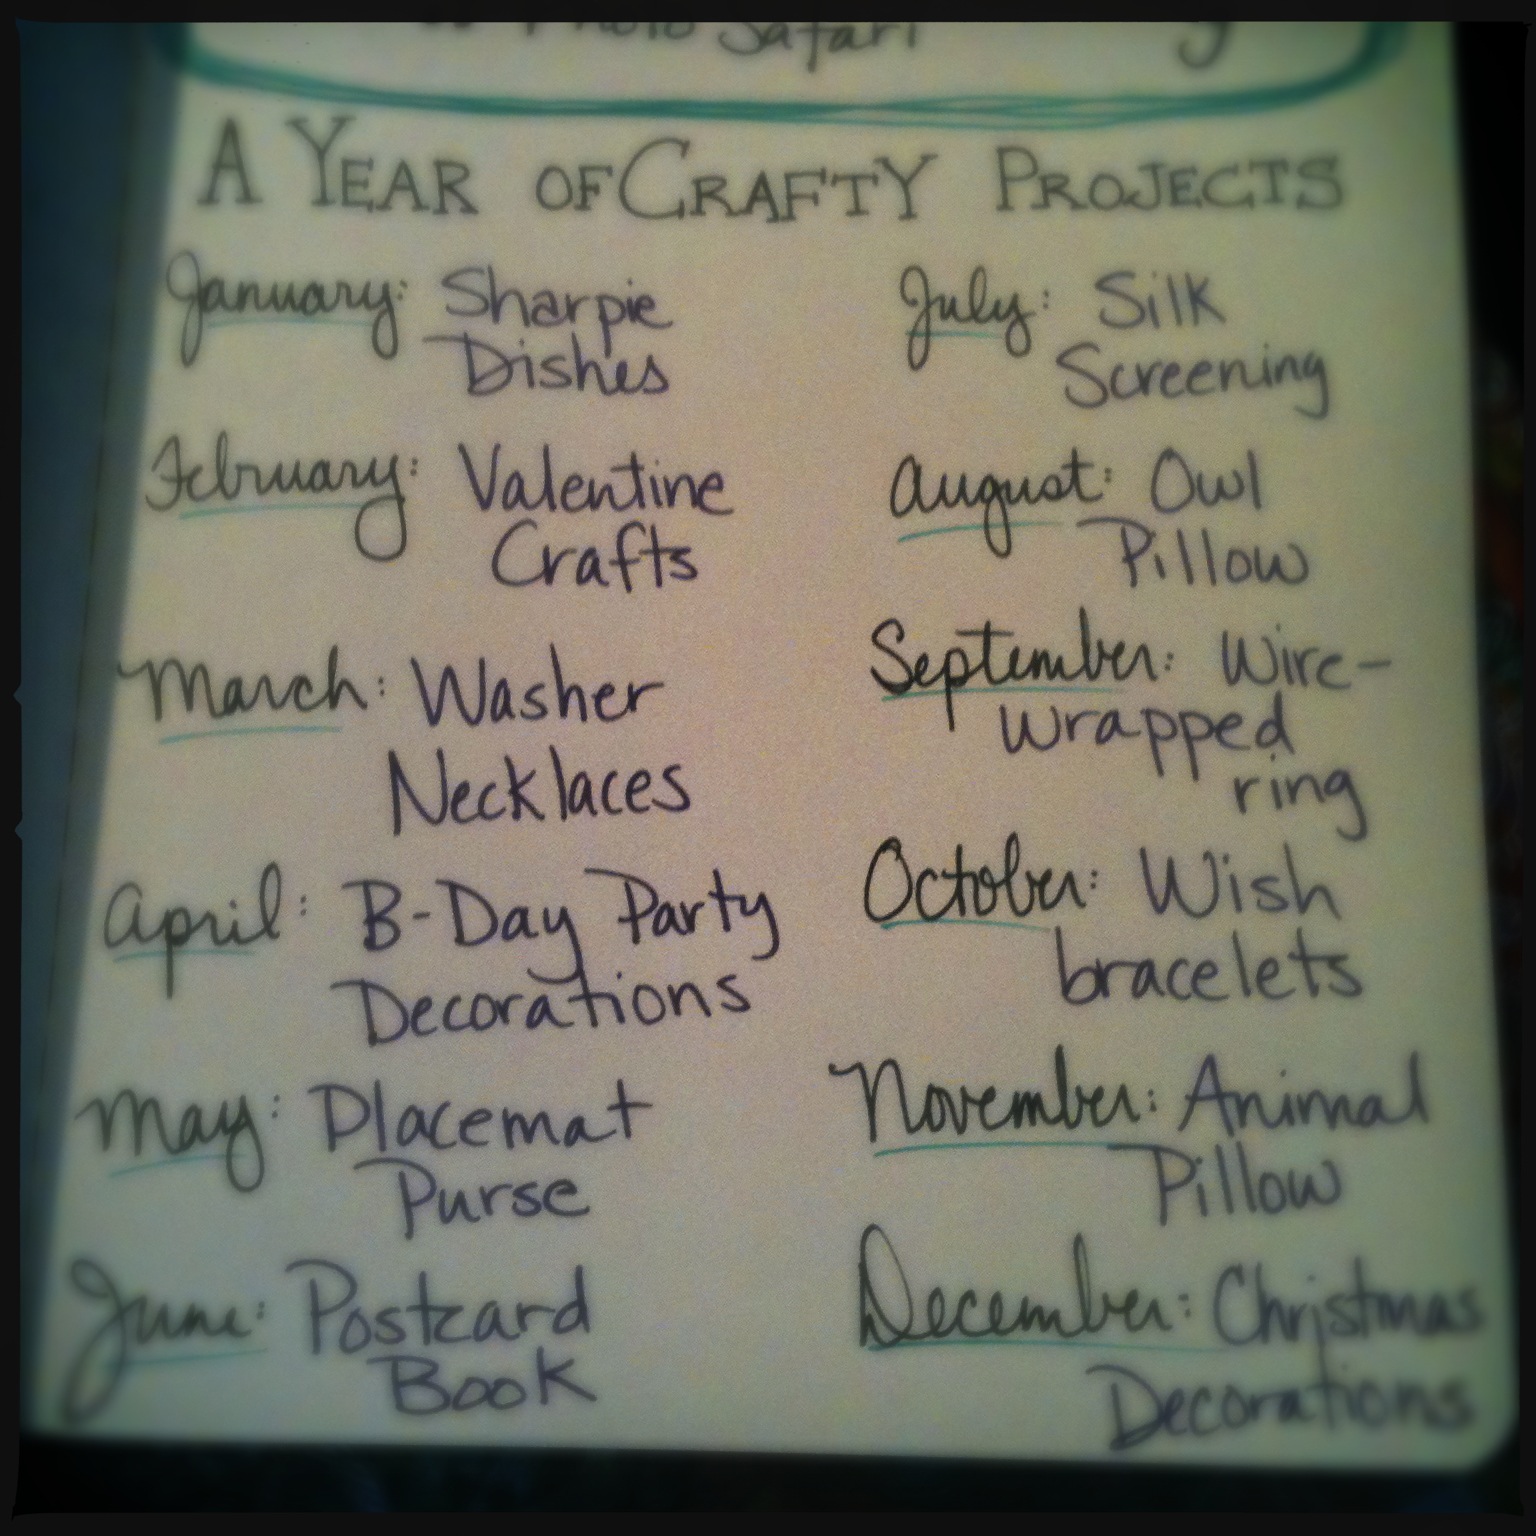 Photo Safari
A YEAR OF CRAFTY PROJECTS
January: Sharpie
Dishes
February: Valentine
Crafts
March: Washer
Necklaces
April: B-Day Party
Decorations
May: Placemat
Purse
June: Postcard
Book
July: Silk
Screening
August: Owl
Pillow
September: Wire-
wrapped
ring
October: Wish
bracelets
November: Animal
Pillow
December: Christmas
Decorations